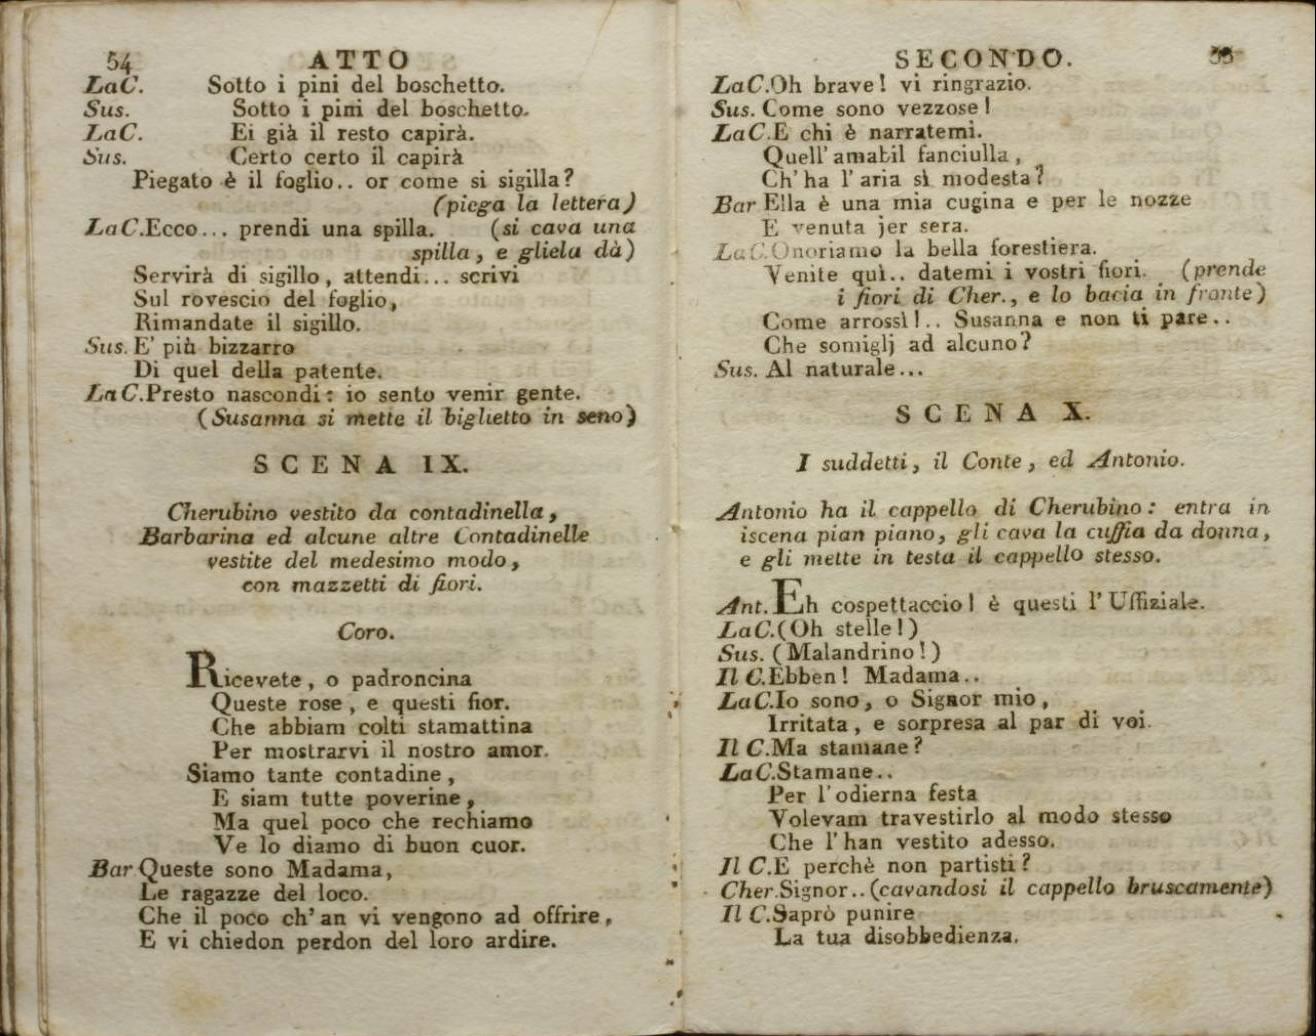 54 ATTO
LaC. Sotto i pini del boschetto.
Sus. Sotto i pini del boschetto.
LaC. Ei già il resto capirà.
Sus. Certo certo il capirà
Piegato è il foglio.. or come si sigilla?
(piega la lettera)
LaC.Ecco... prendi una spilla. (si cava una
spilla, e gliela dà)
Servirà di sigillo, attendi... scrivi
Sul rovescio del foglio,
Rimandate il sigillo.
Sus. E' più bizzarro
Di quel della patente.
LaC.Presto nascondi: io sento venir gente.
(Susanna si mette il biglietto in seno)
SCENA IX.
Cherubino vestito da contadinella,
Barbarina ed alcune altre Contadinelle
vestite del medesimo modo,
con mazzetti di fiori.
Coro.
Ricevete, o padroncina
Queste rose, e questi fior.
Che abbiam colti stamattina
Per mostrarvi il nostro amor.
Siamo tante contadine,
E siam tutte poverine,
Ma quel poco che rechiamo
Ve lo diamo di buon cuor.
Bar Queste sono Madama,
Le ragazze del loco.
Che il poco ch'an vi vengono ad offrire,
E vi chiedon perdon del loro ardire.
SECONDO. 55
LaC.Oh brave! vi ringrazio.
Sus. Come sono vezzose!
LaC.E chi è narratemi.
Quell'amabil fanciulla,
Ch'ha l'aria sì modesta?
Bar Ella è una mia cugina e per le nozze
E venuta jer sera.
LaC.Onoriamo la bella forestiera.
Venite quì.. datemi i vostri fiori. (prende
i fiori di Cher., e lo bacia in fronte)
Come arrossì!.. Susanna e non ti pare..
Che somiglj ad alcuno?
Sus. Al naturale...
SCENA X.
I suddetti, il Conte, ed Antonio.
Antonio ha il cappello di Cherubino: entra in
iscena pian piano, gli cava la cuffia da donna,
e gli mette in testa il cappello stesso.
Ant.Eh cospettaccio! è questi l'Uffiziale.
LaC.(Oh stelle!)
Sus. (Malandrino!)
Il C.Ebben! Madama..
LaC.Io sono, o Signor mio,
Irritata, e sorpresa al par di voi.
Il C.Ma stamane?
LaC.Stamane..
Per l'odierna festa
Volevam travestirlo al modo stesso
Che l'han vestito adesso.
Il C.E perchè non partisti?
Cher.Signor..(cavandosi il cappello bruscamente)
Il C.Saprò punire
La tua disobbedienza.